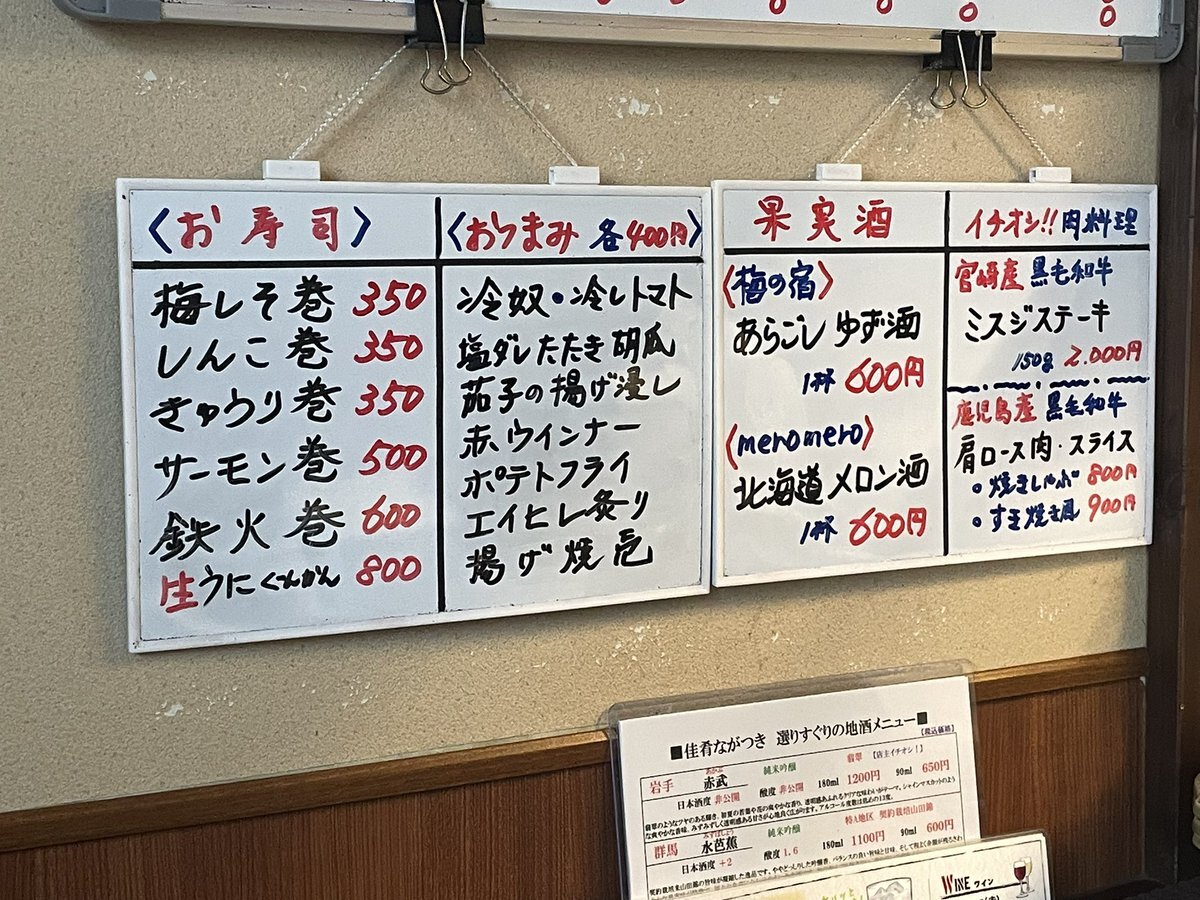 〈お寿司〉
梅しそ巻 350
しんこ巻 350
きゅうり巻 350
サーモン巻 500
鉄火巻 600
生うにぐんかん 800
〈おつまみ 各400円〉
冷奴・冷しトマト
塩ダレたたき胡瓜
茄子の揚げ浸し
赤ウインナー
ポテトフライ
エイヒレ炙り
揚げ焼売
果実酒
〈梅の宿〉
あらごしゆず酒
1杯 600円
〈meromero〉
北海道メロン酒
1杯 600円
イチオシ!! 肉料理
宮崎産 黒毛和牛
ミスジステーキ
150g 2.000円
鹿児島産 黒毛和牛
肩ロース肉・スライス
。焼きしゃぶ 800円
。すき焼き風 900円
■佳肴ながつき 選りすぐりの地酒メニュー■
【税込価格】
岩手 赤武 あかぶ 純米吟醸 翡翠 【店主イチオシ!】
日本酒度 非公開 酸度 非公開 180ml 1200円 90ml 650円
群馬 水芭蕉 みずばしょう 純米吟醸 特A地区 契約栽培山田錦
日本酒度 +2 酸度 1.6 180ml 1100円 90ml 600円
WINE ワイン